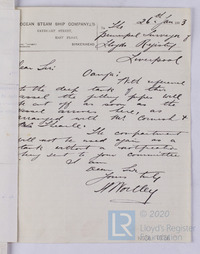 OCEAN STEAM SHIP COMPANY LD
EAST FLOAT
BIRKENHEAD
26th Jan 3
The
principal Surveyor of
Lloyds Registry
Liverpool
Dear Sir
"Oanfa" With reference
to the deep tank of this
vessel the filling pipes will
be cut off as soon as the
vessel arrives here, as
arranged with Mr Cornish &
Mr Thearle.
The compartment
will not be used again as a
tank without a notification
being sent to your Committee
I am
Dear Sir
Yours truly
© 2020
Lloyd's Register
Foundation